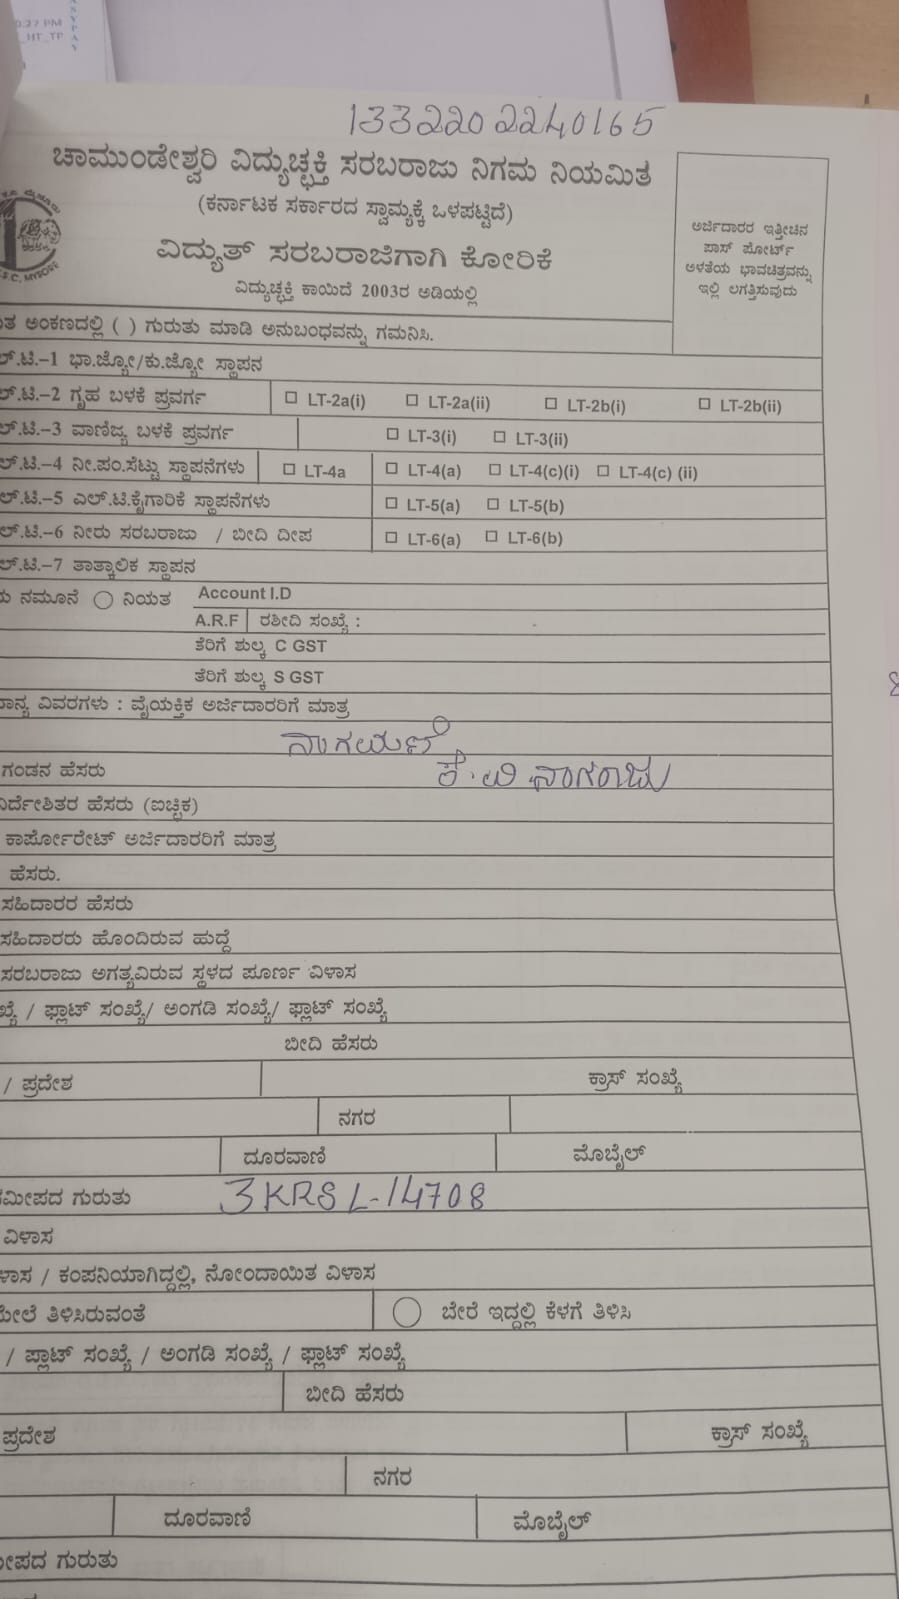 133220 2240165
ಚಾಮುಂಡೇಶ್ವರಿ ವಿದ್ಯುಚ್ಛಕ್ತಿ ಸರಬರಾಜು ನಿಗಮ ನಿಯಮಿತ
(ಕರ್ನಾಟಕ ಸರ್ಕಾರದ ಸ್ವಾಮ್ಯಕ್ಕೆ ಒಳಪಟ್ಟಿದೆ)
ವಿದ್ಯುತ್ ಸರಬರಾಜಿಗಾಗಿ ಕೋರಿಕೆ
ವಿದ್ಯುಚ್ಛಕ್ತಿ ಕಾಯಿದೆ 2003ರ ಅಡಿಯಲ್ಲಿ
ಅರ್ಜಿದಾರರ ಇತ್ತೀಚಿನ
ಪಾಸ್ ಪೋರ್ಟ್
ಅಳತೆಯ ಭಾವಚಿತ್ರವನ್ನು
ಇಲ್ಲಿ ಲಗತ್ತಿಸುವುದು
ಅಂಕಣದಲ್ಲಿ ( ) ಗುರುತು ಮಾಡಿ ಅನುಬಂಧವನ್ನು ಗಮನಿಸಿ.
ಲ್.ಟಿ.–1 ಭಾ.ಜ್ಯೋ/ಕು.ಜ್ಯೋ ಸ್ಥಾಪನ
ಲ್.ಟಿ.–2 ಗೃಹ ಬಳಕೆ ಪ್ರವರ್ಗ □ LT-2a(i) □ LT-2a(ii) □ LT-2b(i) □ LT-2b(ii)
ಲ್.ಟಿ.–3 ವಾಣಿಜ್ಯ ಬಳಕೆ ಪ್ರವರ್ಗ □ LT-3(i) □ LT-3(ii)
ಲ್.ಟಿ.–4 ನೀ.ಪಂ.ಸೆಟ್ಟು ಸ್ಥಾಪನೆಗಳು □ LT-4a □ LT-4(a) □ LT-4(c)(i) □ LT-4(c) (ii)
ಲ್.ಟಿ.–5 ಎಲ್.ಟಿ.ಕೈಗಾರಿಕೆ ಸ್ಥಾಪನೆಗಳು □ LT-5(a) □ LT-5(b)
ಲ್.ಟಿ.–6 ನೀರು ಸರಬರಾಜು / ಬೀದಿ ದೀಪ □ LT-6(a) □ LT-6(b)
ಲ್.ಟಿ.–7 ತಾತ್ಕಾಲಿಕ ಸ್ಥಾಪನ
ನಮೂನೆ ○ ನಿಯತ Account I.D
A.R.F ರಶೀದಿ ಸಂಖ್ಯೆ :
ತೆರಿಗೆ ಶುಲ್ಕ C GST
ತೆರಿಗೆ ಶುಲ್ಕ S GST
ವಿವರಗಳು : ವೈಯಕ್ತಿಕ ಅರ್ಜಿದಾರರಿಗೆ ಮಾತ್ರ
ನಾಗಮಣಿ
ಗಂಡನ ಹೆಸರು ಕೆ.ವಿ ನಾಗರಾಜು
ನಿರ್ದೇಶಿತರ ಹೆಸರು (ಐಚ್ಛಿಕ)
ಕಾರ್ಪೋರೇಟ್ ಅರ್ಜಿದಾರರಿಗೆ ಮಾತ್ರ
ಹೆಸರು.
ಸಹಿದಾರರ ಹೆಸರು
ಸಹಿದಾರರು ಹೊಂದಿರುವ ಹುದ್ದೆ
ಸರಬರಾಜು ಅಗತ್ಯವಿರುವ ಸ್ಥಳದ ಪೂರ್ಣ ವಿಳಾಸ
ಖ್ಯೆ / ಫ್ಲಾಟ್ ಸಂಖ್ಯೆ/ ಅಂಗಡಿ ಸಂಖ್ಯೆ/ ಫ್ಲಾಟ್ ಸಂಖ್ಯೆ
ಬೀದಿ ಹೆಸರು
/ ಪ್ರದೇಶ ಕ್ರಾಸ್ ಸಂಖ್ಯೆ
ನಗರ
ದೂರವಾಣಿ ಮೊಬೈಲ್
ಮೀಪದ ಗುರುತು 3KRSL-14708
ವಿಳಾಸ
ಳಾಸ / ಕಂಪನಿಯಾಗಿದ್ದಲ್ಲಿ, ನೋಂದಾಯಿತ ವಿಳಾಸ
ಮೇಲೆ ತಿಳಿಸಿರುವಂತೆ ○ ಬೇರೆ ಇದ್ದಲ್ಲಿ ಕೆಳಗೆ ತಿಳಿಸಿ
/ ಪ್ಲಾಟ್ ಸಂಖ್ಯೆ / ಅಂಗಡಿ ಸಂಖ್ಯೆ / ಫ್ಲಾಟ್ ಸಂಖ್ಯೆ
ಬೀದಿ ಹೆಸರು
ಪ್ರದೇಶ ಕ್ರಾಸ್ ಸಂಖ್ಯೆ
ನಗರ
ದೂರವಾಣಿ ಮೊಬೈಲ್
ಮೀಪದ ಗುರುತು